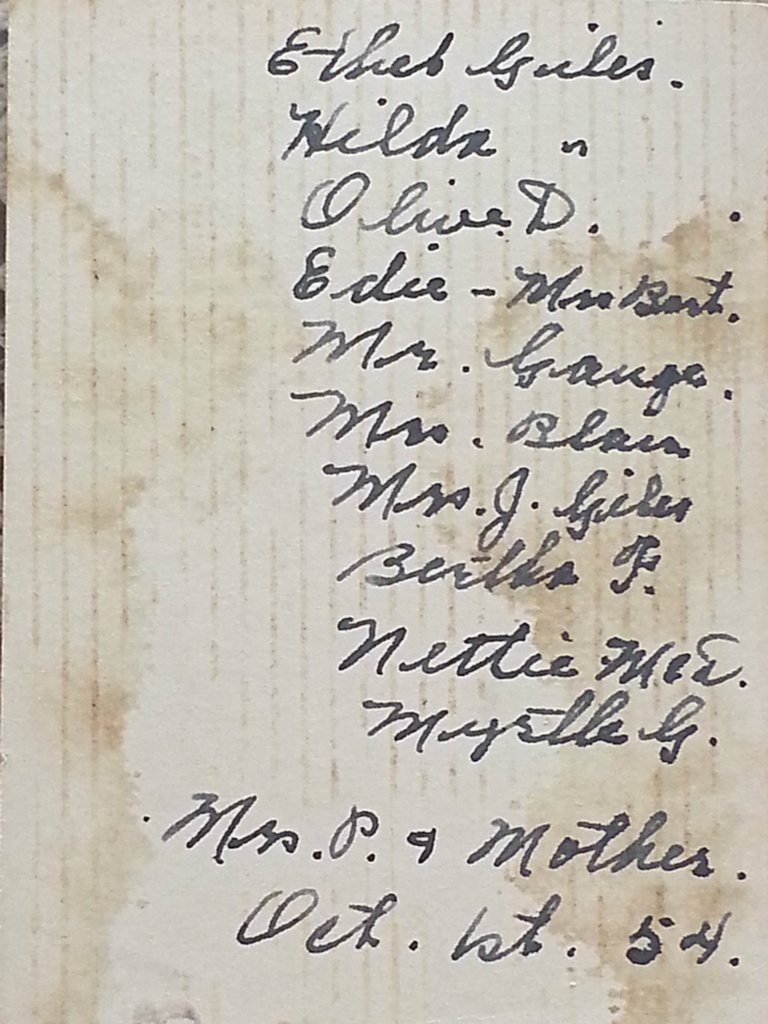 Ethel Giles.
Hilda "
Olive D.
Edie - Mrs Bert.
Mr. Gauge.
Mrs. Blain
Mrs. J. Giles
Bertha F.
Nettie
Myrtle G.
Mrs. P. & Mother.
Oct. 1st. 54.